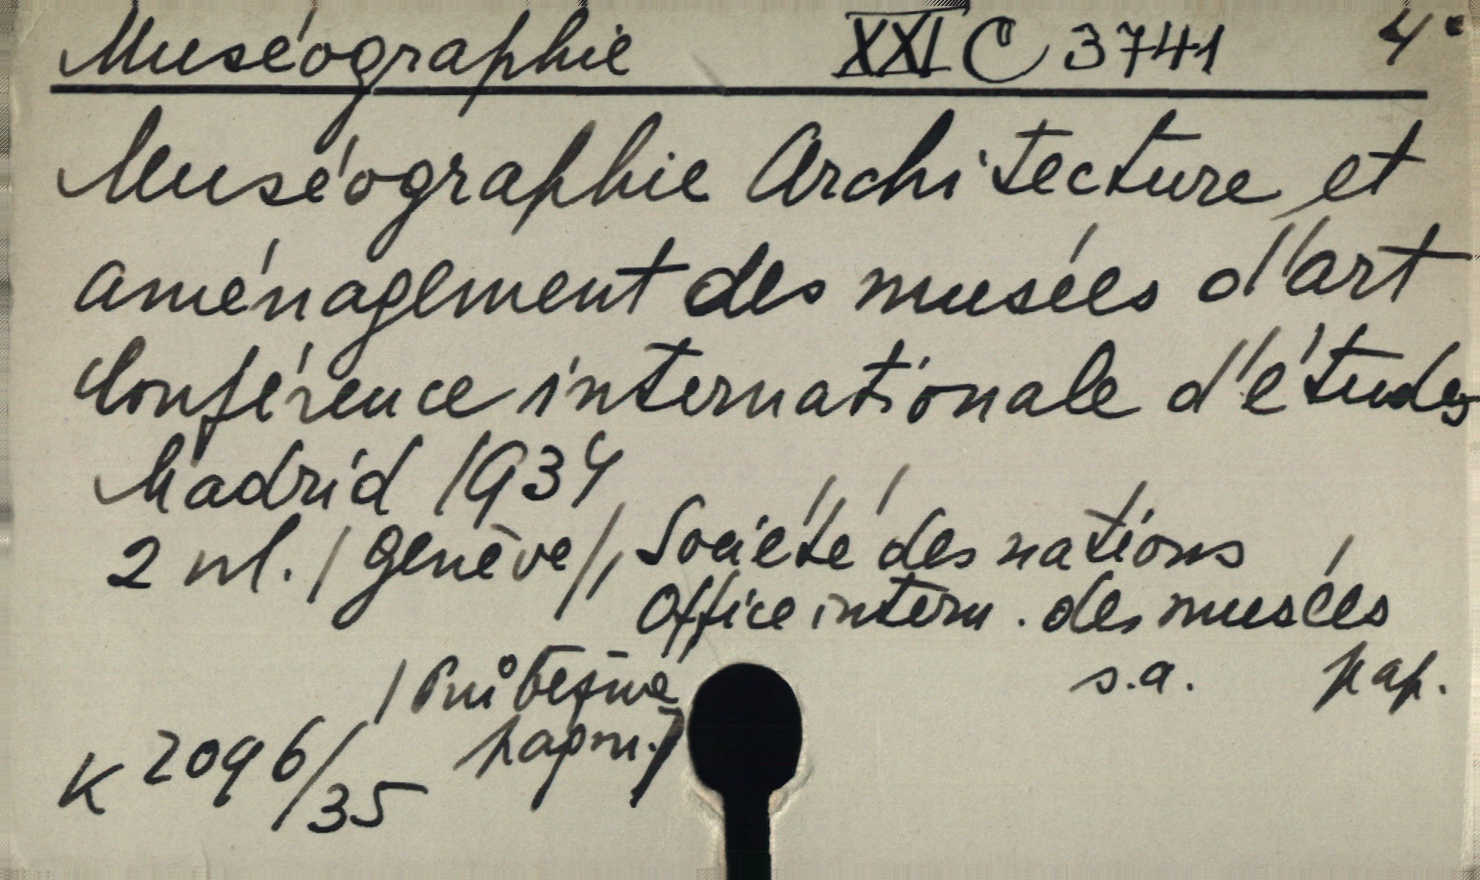 Muséographie XXI C 3741 4°
Muséographie Architecture et
aménagement des musées d'art
Conférence internationale d'études
Madrid 1934
2 vol. / Genève /, Société des nations
Office intern. des musées
s.a. pap.
/ Průběžně
pagin. /
K 2096/35